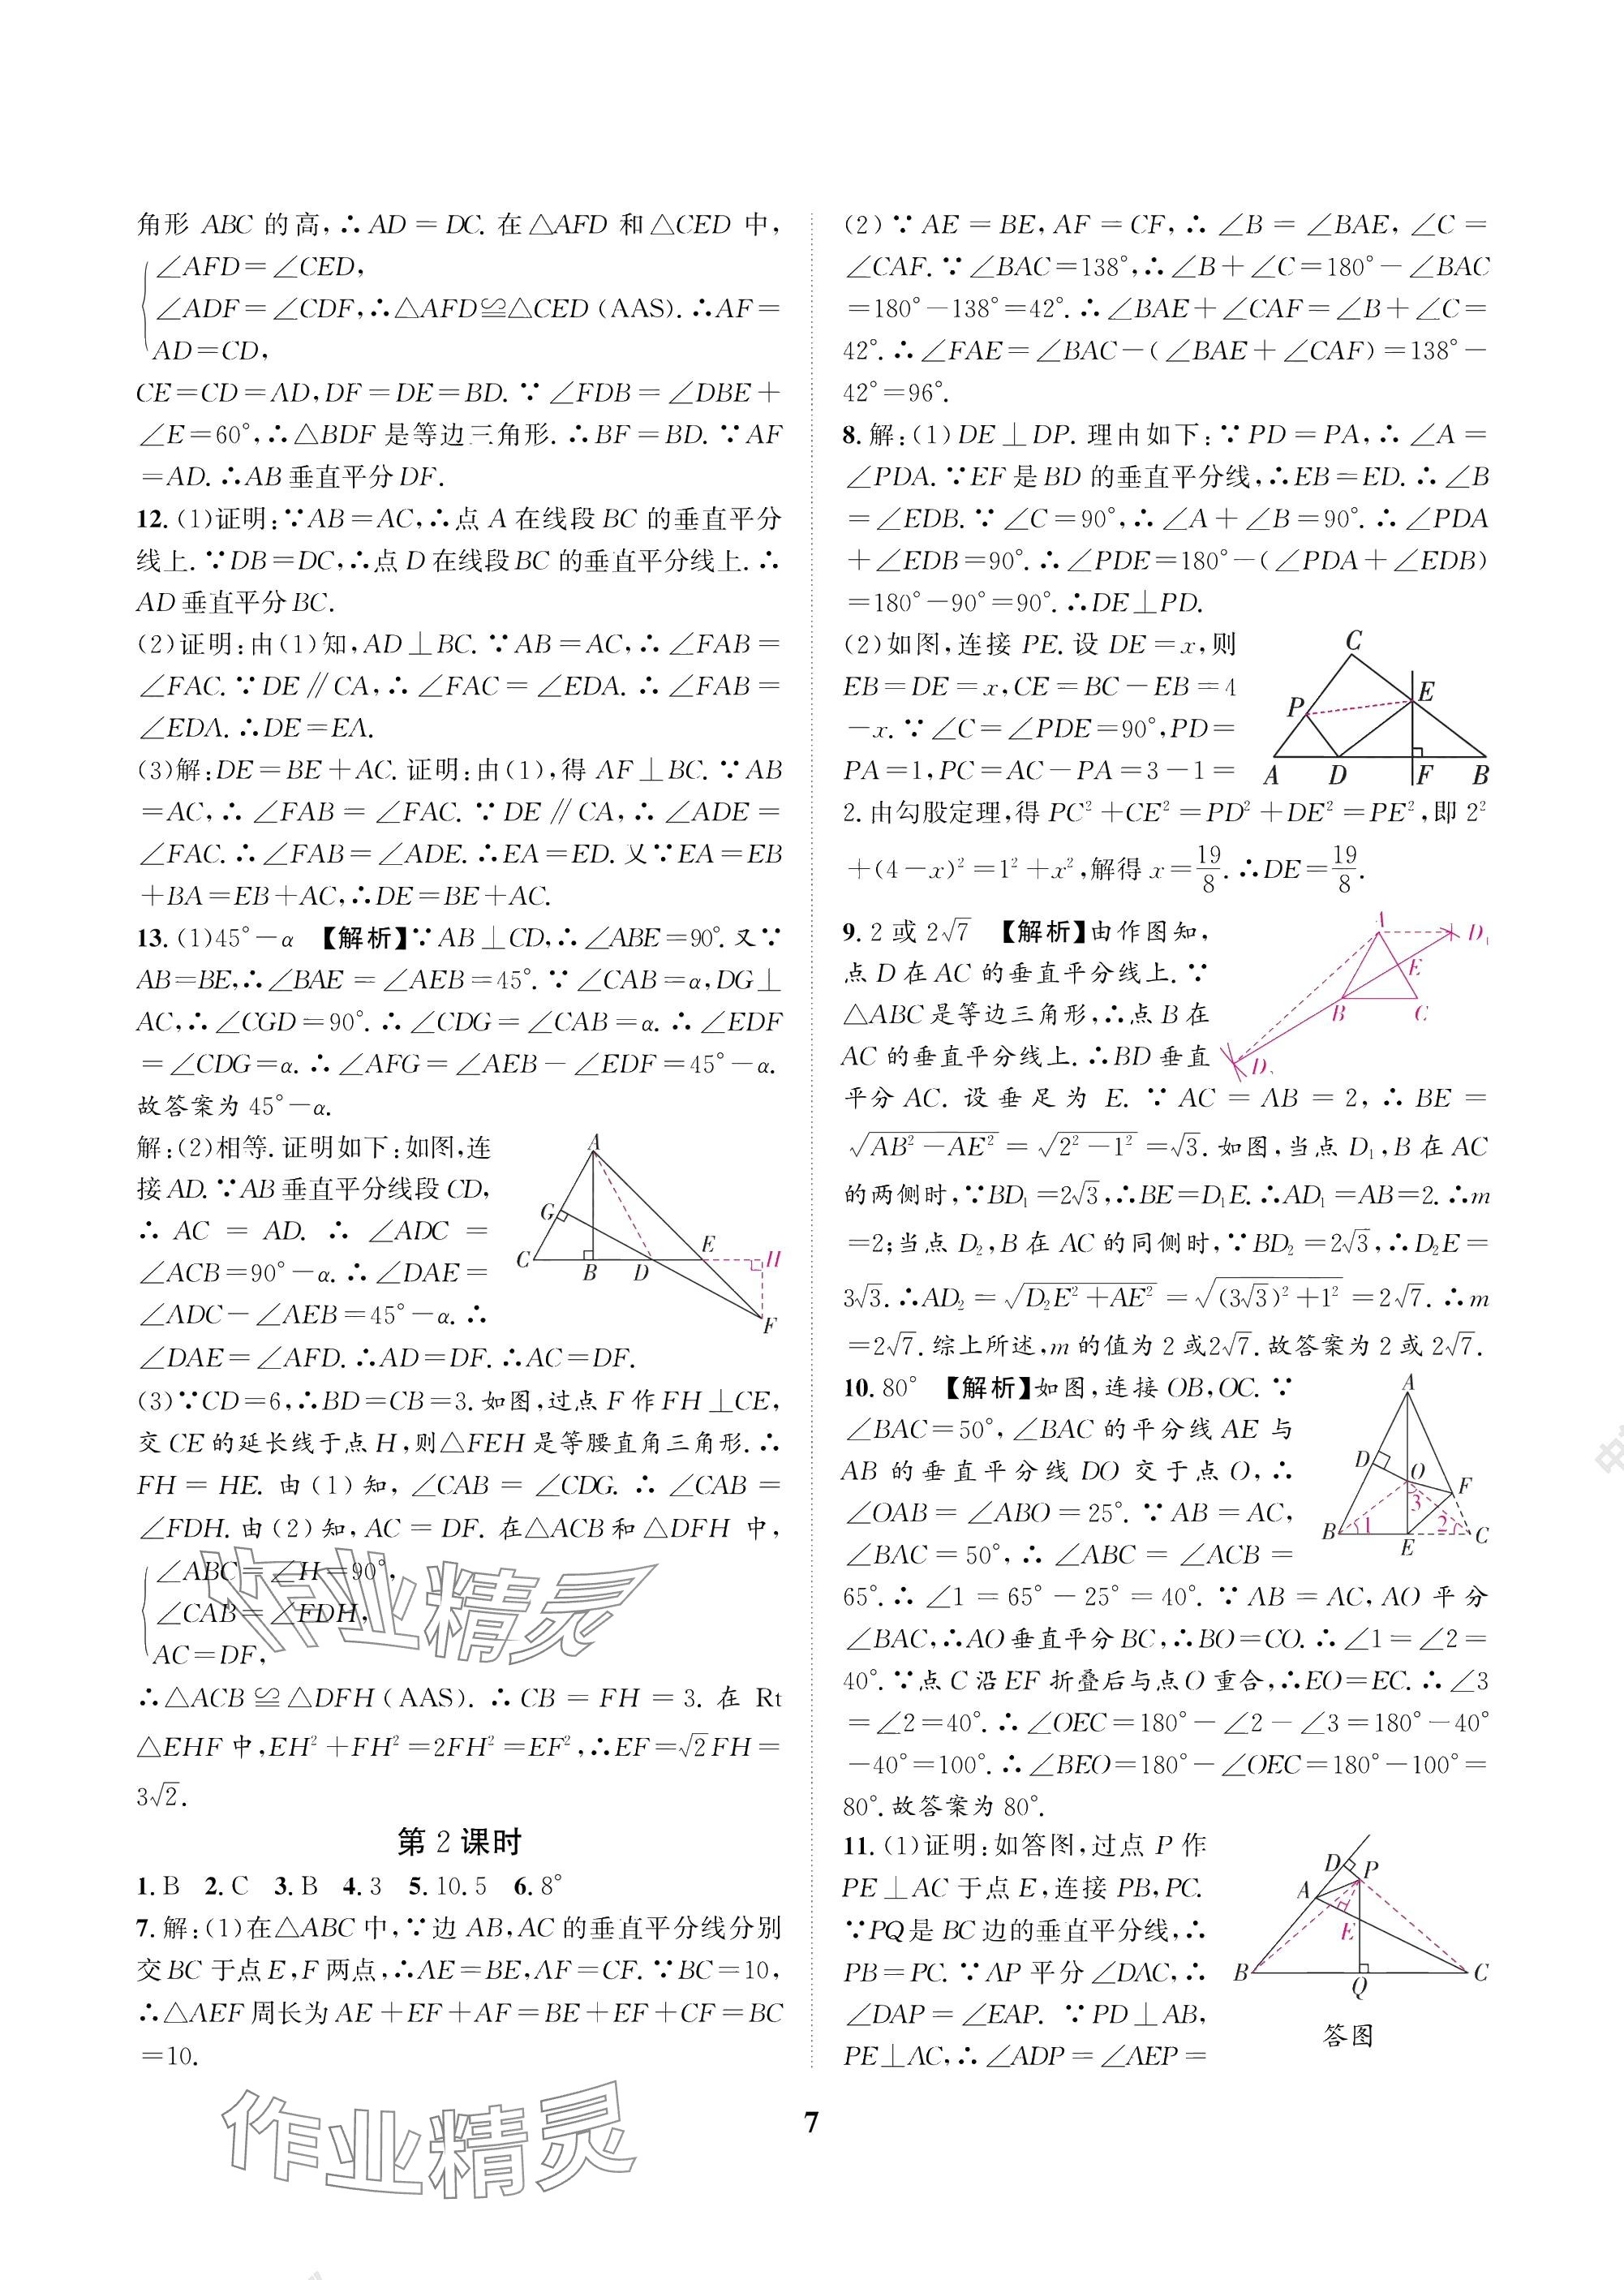 角形 ABC 的高,∴AD=DC. 在△AFD 和△CED 中,
∠AFD=∠CED,
∠ADF=∠CDF,∴△AFD≌△CED(AAS).∴AF=
AD=CD,
CE=CD=AD,DF=DE=BD.∵∠FDB=∠DBE+
∠E=60°,∴△BDF 是等边三角形.∴BF=BD.∵AF
=AD.∴AB 垂直平分 DF.
12.(1)证明:∵AB=AC,∴点 A 在线段 BC 的垂直平分
线上.∵DB=DC,∴点 D 在线段 BC 的垂直平分线上.∴
AD 垂直平分 BC.
(2)证明:由(1)知,AD⊥BC.∵AB=AC,∴∠FAB=
∠FAC.∵DE∥CA,∴∠FAC=∠EDA.∴∠FAB=
∠EDA.∴DE=EA.
(3)解:DE=BE+AC.证明:由(1),得 AF⊥BC.∵AB
=AC,∴∠FAB=∠FAC.∵DE∥CA,∴∠ADE=
∠FAC.∴∠FAB=∠ADE.∴EA=ED.又∵EA=EB
+BA=EB+AC,∴DE=BE+AC.
13.(1)45°-α 【解析】∵AB⊥CD,∴∠ABE=90°.又∵
AB=BE,∴∠BAE=∠AEB=45°.∵∠CAB=α,DG⊥
AC,∴∠CGD=90°.∴∠CDG=∠CAB=α.∴∠EDF
=∠CDG=α.∴∠AFG=∠AEB-∠EDF=45°-α.
故答案为 45°-α.
解:(2)相等.证明如下:如图,连
接 AD.∵AB 垂直平分线段 CD,
∴AC=AD.∴∠ADC=
∠ACB=90°-α.∴∠DAE=
∠ADC-∠AEB=45°-α.∴
∠DAE=∠AFD.∴AD=DF.∴AC=DF.
A
G
C
B
D
E
H
F
(3)∵CD=6,∴BD=CB=3.如图,过点 F 作 FH⊥CE,
交 CE 的延长线于点 H,则△FEH 是等腰直角三角形.∴
FH=HE.由(1)知,∠CAB=∠CDG.∴∠CAB=
∠FDH.由(2)知,AC=DF.在△ACB 和△DFH 中,
∠ABC=∠H=90°,
∠CAB=∠FDH,
AC=DF,
∴△ACB≌△DFH(AAS).∴CB=FH=3.在 Rt
△EHF 中,EH²+FH²=2FH²=EF²,∴EF=√2FH=
3√2.
第 2 课时
1.B 2.C 3.B 4.3 5.10.5 6.8°
7.解:(1)在△ABC 中,∵边 AB,AC 的垂直平分线分别
交 BC 于点 E,F 两点,∴AE=BE,AF=CF.∵BC=10,
∴△AEF 周长为 AE+EF+AF=BE+EF+CF=BC
=10.
(2)∵AE=BE,AF=CF,∴∠B=∠BAE,∠C=
∠CAF.∵∠BAC=138°,∴∠B+∠C=180°-∠BAC
=180°-138°=42°.∴∠BAE+∠CAF=∠B+∠C=
42°.∴∠FAE=∠BAC-(∠BAE+∠CAF)=138°-
42°=96°.
8.解:(1)DE⊥DP.理由如下:∵PD=PA,∴∠A=
∠PDA.∵EF 是 BD 的垂直平分线,∴EB=ED.∴∠B
=∠EDB.∵∠C=90°,∴∠A+∠B=90°.∴∠PDA
+∠EDB=90°.∴∠PDE=180°-(∠PDA+∠EDB)
=180°-90°=90°.∴DE⊥PD.
(2)如图,连接 PE.设 DE=x,则
EB=DE=x,CE=BC-EB=4
-x.∵∠C=∠PDE=90°,PD=
PA=1,PC=AC-PA=3-1=
C
P
E
A
D
F
B
2.由勾股定理,得 PC²+CE²=PD²+DE²=PE²,即 2²
+(4-x)²=1²+x²,解得 x=19/8.∴DE=19/8.
9.2 或 2√7 【解析】由作图知,
点 D 在 AC 的垂直平分线上.∵
△ABC 是等边三角形,∴点 B 在
AC 的垂直平分线上.∴BD 垂直
A
D₁
E
B
C
D₂
平分 AC.设垂足为 E.∵AC=AB=2,∴BE=
√(AB²-AE²)=√(2²-1²)=√3.如图,当点 D₁,B 在 AC
的两侧时,∵BD₁=2√3,∴BE=D₁E.∴AD₁=AB=2.∴m
=2;当点 D₂,B 在 AC 的同侧时,∵BD₂=2√3,∴D₂E=
3√3.∴AD₂=√(D₂E²+AE²)=√((3√3)²+1²)=2√7.∴m
=2√7.综上所述,m 的值为 2 或2√7.故答案为 2 或 2√7.
10.80° 【解析】如图,连接 OB,OC.∵
∠BAC=50°,∠BAC 的平分线 AE 与
AB 的垂直平分线 DO 交于点 O,∴
∠OAB=∠ABO=25°.∵AB=AC,
∠BAC=50°,∴∠ABC=∠ACB=
A
D
O
F
3
B
1
2
C
E
65°.∴∠1=65°-25°=40°.∵AB=AC,AO 平分
∠BAC,∴AO 垂直平分 BC,∴BO=CO.∴∠1=∠2=
40°.∵点 C 沿 EF 折叠后与点 O 重合,∴EO=EC.∴∠3
=∠2=40°.∴∠OEC=180°-∠2-∠3=180°-40°
-40°=100°.∴∠BEO=180°-∠OEC=180°-100°=
80°.故答案为 80°.
11.(1)证明:如答图,过点 P 作
PE⊥AC 于点 E,连接 PB,PC.
∵PQ是 BC 边的垂直平分线,∴
PB=PC.∵AP 平分∠DAC,∴
∠DAP=∠EAP.∵PD⊥AB,
PE⊥AC,∴∠ADP=∠AEP=
D
P
A
E
B
Q
C
答图
7
作业精灵
作业精灵